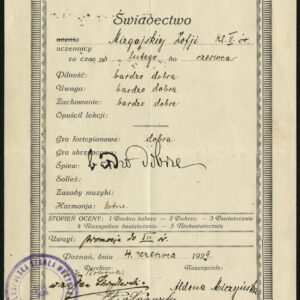 Świadectwo
ucznia
uczennicy Mizgajskiej Zofji kl. II śr.
za czas od lutego do czerwca
Pilność: bardzo dobra
Uwaga: bardzo dobra
Zachowanie: bardzo dobre
Opuścił lekcji:
Gra fortepianowa: dobra
Gra skrzypcowa:
Śpiew: bardzo dobrze
Solfeż:
Zasady muzyki:
Harmonja: dobrze
STOPIEŃ OCENY: 1 Bardzo dobrze — 2 Dobrze — 3 Dostatecznie
4 Niezupełnie dostatecznie — 5 Niedostatecznie
Uwagi: promocja do III śr.
Poznań, dnia 4 czerwca 1929
Dyrektor: Nauczyciel:
Aldona